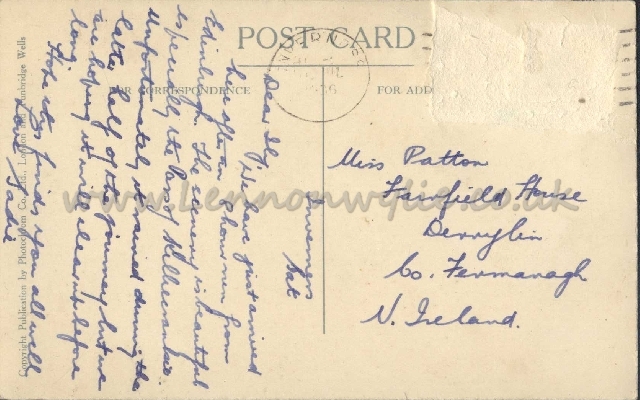 POST CARD
FOR CORRESPONDENCE
FOR ADD
Inverness
Sat
Dear Ily, We have just arrived
here after an 8 hour run from
Edinburgh. The scenery is beautiful
especially the Pass of Killiecrankie.
Unfortunately it rained during the
latter half of the journey but we
are hoping it will clear up before
long.
Hope this finds you all well
Love Sadie
Miss Patton
Fairfield House
Derrylin
Co. Fermanagh
N. Ireland.
Copyright Publication by Photochrom Co., Ltd., London and Tunbridge Wells
www.Lennonwylie.co.uk